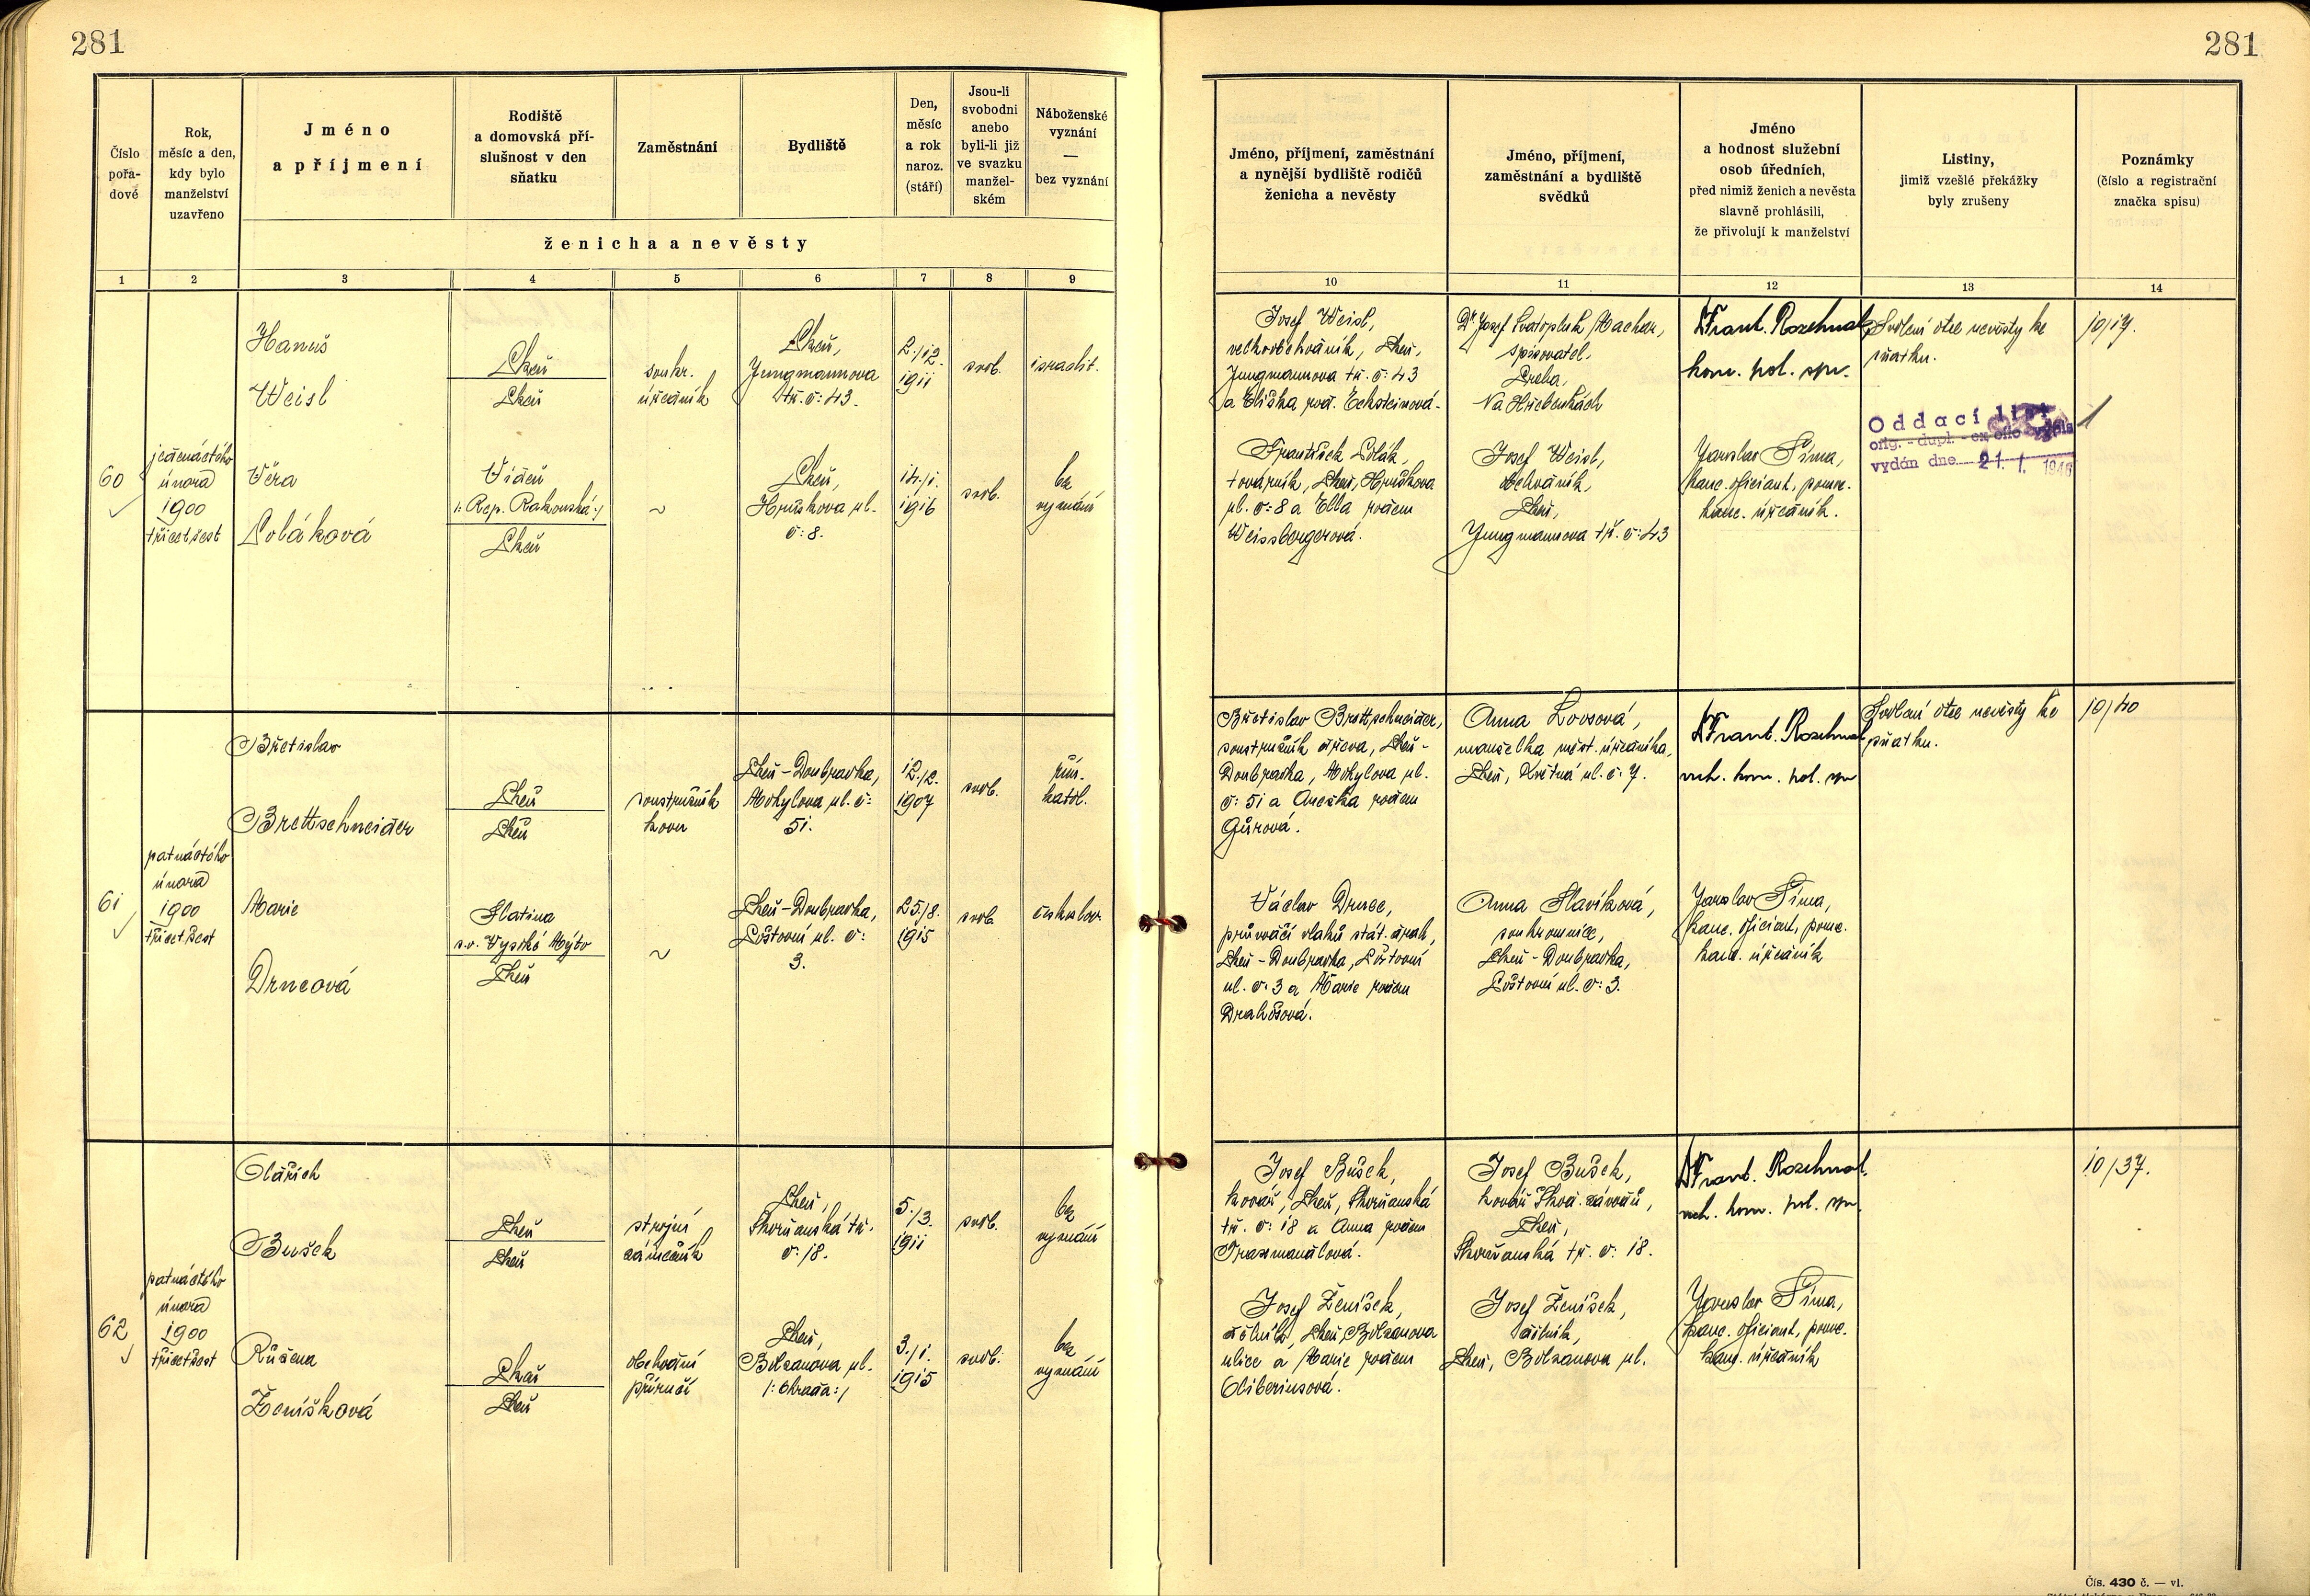 281
281
Číslo
pořa-
dové
Rok,
měsíc a den,
kdy bylo
manželství
uzavřeno
Jméno
a příjmení
Rodiště
a domovská pří-
slušnost v den
sňatku
Zaměstnání
Bydliště
Den,
měsíc
a rok
naroz.
(stáří)
Jsou-li
svobodni
anebo
byli-li již
ve svazku
manžel-
ském
Náboženské
vyznání
—
bez vyznání
ženicha a nevěsty
Jméno, příjmení, zaměstnání
a nynější bydliště rodičů
ženicha a nevěsty
Jméno, příjmení,
zaměstnání a bydliště
svědků
Jméno
a hodnost služební
osob úředních,
před nimiž ženich a nevěsta
slavně prohlásili,
že přivolují k manželství
Listiny,
jimiž vzešlé překážky
byly zrušeny
Poznámky
(číslo a registrační
značka spisu)
1 2 3 4 5 6 7 8 9 10 11 12 13 14
60
jedenáctého
února
1900
třicetšest
Hanuš
Weisl
Plzeň
Plzeň
soukr.
úředník
Plzeň,
Jungmannova
tř. č: 43.
2./12.
1911
svob.
israelit.
Josef Weisl,
velkoobchodník, Plzeň,
Jungmannova tř. č: 43
a Eliška roz. Ecksteinová.
Dr. Josef Svatopluk Machar,
spisovatel,
Praha,
Na Hřebenkách
Frant. Rozehnal
kom. pol. spr.
Svolení otce nevěsty ke
sňatku.
10/17.
Věra
Poláková
Vídeň
/: Rep. Rakouská :/
Plzeň
~
Plzeň,
Hruškova ul.
č: 8.
14./1.
1916
svob.
bez
vyznání
František Polák,
továrník, Plzeň, Hruškova
ul. č: 8 a Ella rozen
Weissbergerová.
Josef Weisl,
obchodník,
Plzeň,
Jungmannova tř. č: 43
Jaroslav Šíma,
kanc. oficiant, pomc.
kanc. úředník.
Oddací list
orig. - dupl. - ex offo vydán
vydán dne 21. 1. 1946
61
patnáctého
února
1900
třicetšest
Břetislav
Brettschneider
Plzeň
Plzeň
soustružník
kovu
Plzeň-Doubravka,
Mohylova ul. č:
51.
12./2.
1907
svob.
řím.
katol.
Břetislav Brettschneider,
soustružník dřeva, Plzeň-
Doubravka, Mohylova ul.
č: 51 a Anežka rozen
Anna Loosová,
manželka měst. úředníka,
Plzeň, Květná ul. č. 7.
Frant. Rozehnal
vrch. kom. pol. spr
Svolení otce nevěsty ke
sňatku.
10/40
Marie
Drncová
Slatina
s.o. Vysoké Mýto
Plzeň
~
Plzeň-Doubravka,
Poštovní ul. č:
3.
25./8.
1915
svob.
českoslov.
Václav Drnec,
průvodčí vlaků stát. drah,
Plzeň-Doubravka, Poštovní
ul. č. 3 a Marie rozen
Drahošová.
Anna Slavíková,
soukromnice,
Plzeň-Doubravka,
Poštovní ul. č: 3.
Jaroslav Šíma,
kanc. oficiant, pomc.
kanc. úředník
62
patnáctého
února
1900
třicetšest
Oldřich
Bušek
Plzeň
Plzeň
strojní
zámečník
Plzeň,
Skvrňanská tř.
č. 18.
5./3.
1911
svob.
bez
vyznání
Josef Bušek,
kovář, Plzeň, Skvrňanská
tř. č: 18 a Anna rozen
Josef Bušek,
kovář Škod. závodů,
Plzeň,
Skvrňanská tř. č: 18.
Frant. Rozehnal.
vrch. kom. pol. spr.
10/37.
Růžena
Ženíšková
Plzeň
Plzeň
obchodní
příručí
Plzeň,
Bolzanova ul.
/: Ohrada :/
3./1.
1915
svob.
bez
vyznání
Josef Ženíšek,
dělník, Plzeň, Bolzanova
ulice a Marie rozen
Oliberiusová.
Josef Ženíšek,
dělník,
Plzeň, Bolzanova ul.
Jaroslav Šíma,
kanc. oficiant, pomc.
kanc. úředník
Čís. 430 č. — vl.